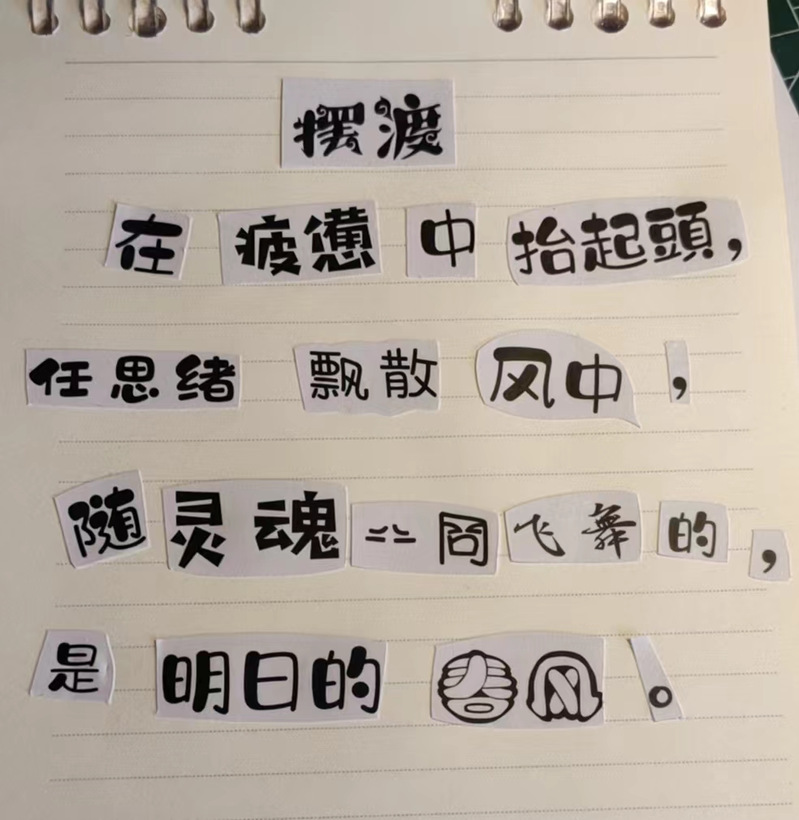 摆渡
在疲惫中抬起頭，
任思绪飘散风中，
随灵魂一同飞舞的，
是明日的春风。